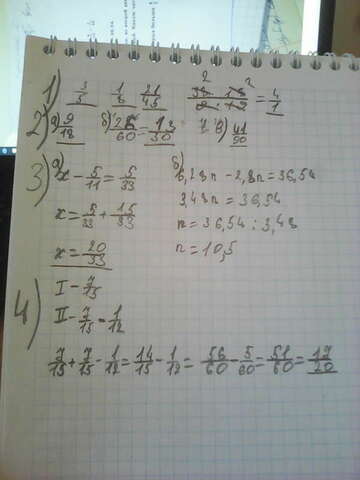 1) 3/5 1/6 21/45 38·18/9·19 = 4/1
2) а) 9/18 б) 26/60 = 13/30 в) 41/90
3) а) x - 5/11 = 5/33
x = 5/33 + 15/33
x = 20/33
б) 6,28n - 2,8n = 36,54
3,48n = 36,54
n = 36,54 : 3,48
n = 10,5
4) I - 7/15
II - 7/15 - 1/12
7/15 + 7/15 - 1/12 = 14/15 - 1/12 = 56/60 - 5/60 = 51/60 = 17/20